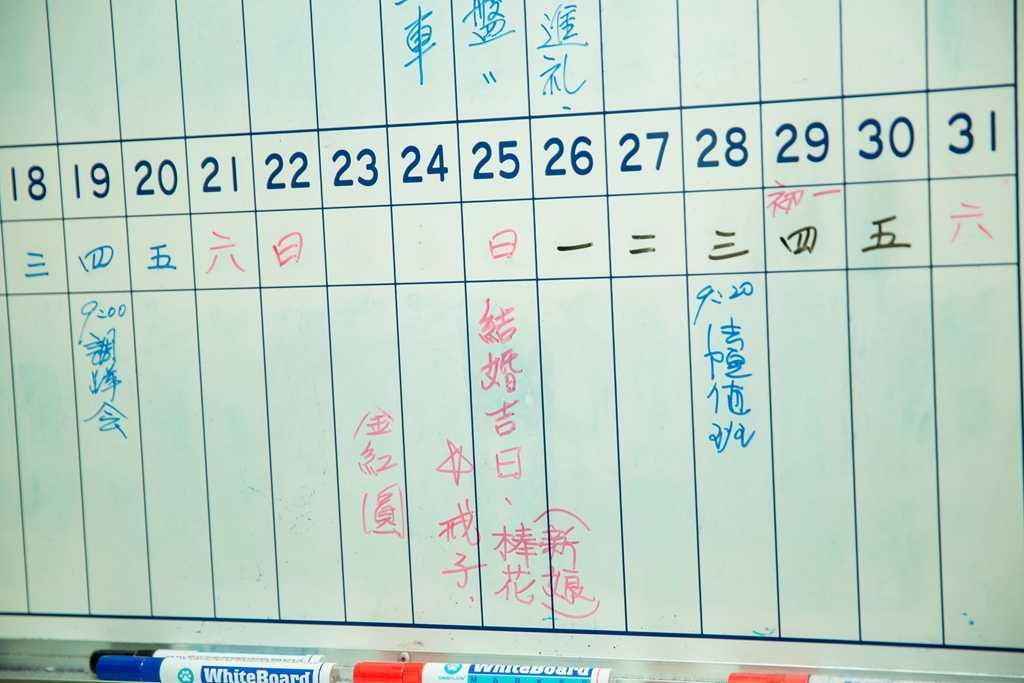 車
盤
〃
進礼、
18 19 20 21 22 23 24 25 26 27 28 29 30 31
初一
三 四 五 六 日 日 一 二 三 四 五 六
9:00
調
会
金紅圓
☆戒子、
結婚吉日、棒花
(新娘)
9:20
值班
WhiteBoard
WhiteBoard
MARKER